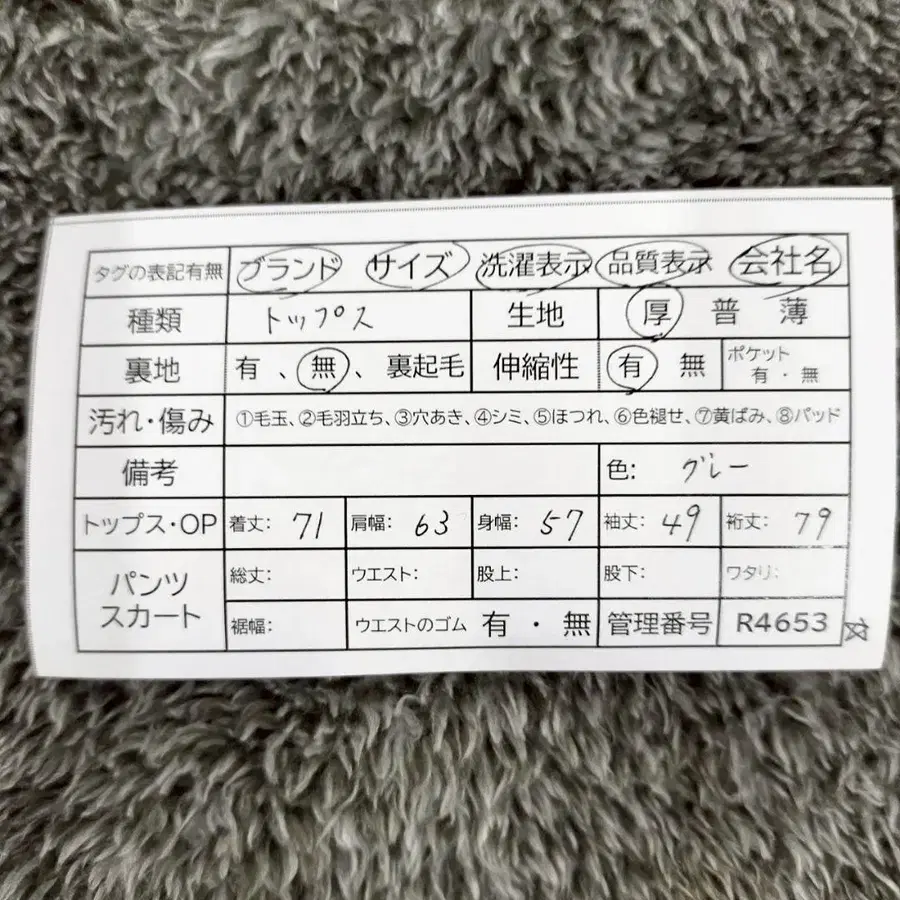 タグの表記有無 ブランド サイズ 洗濯表示 品質表示 会社名
種類 トップス 生地 厚 普 薄
裏地 有 、 無 、 裏起毛 伸縮性 有 無 ポケット 有 ・ 無
汚れ・傷み ①毛玉、②毛羽立ち、③穴あき、④シミ、⑤ほつれ、⑥色褪せ、⑦黄ばみ、⑧パッド
備考 色: グレー
トップス・OP 着丈: 71 肩幅: 63 身幅: 57 袖丈: 49 裄丈: 79
パンツ スカート 総丈: ウエスト: 股上: 股下: ワタリ:
裾幅: ウエストのゴム 有 ・ 無 管理番号 R4653 ☆